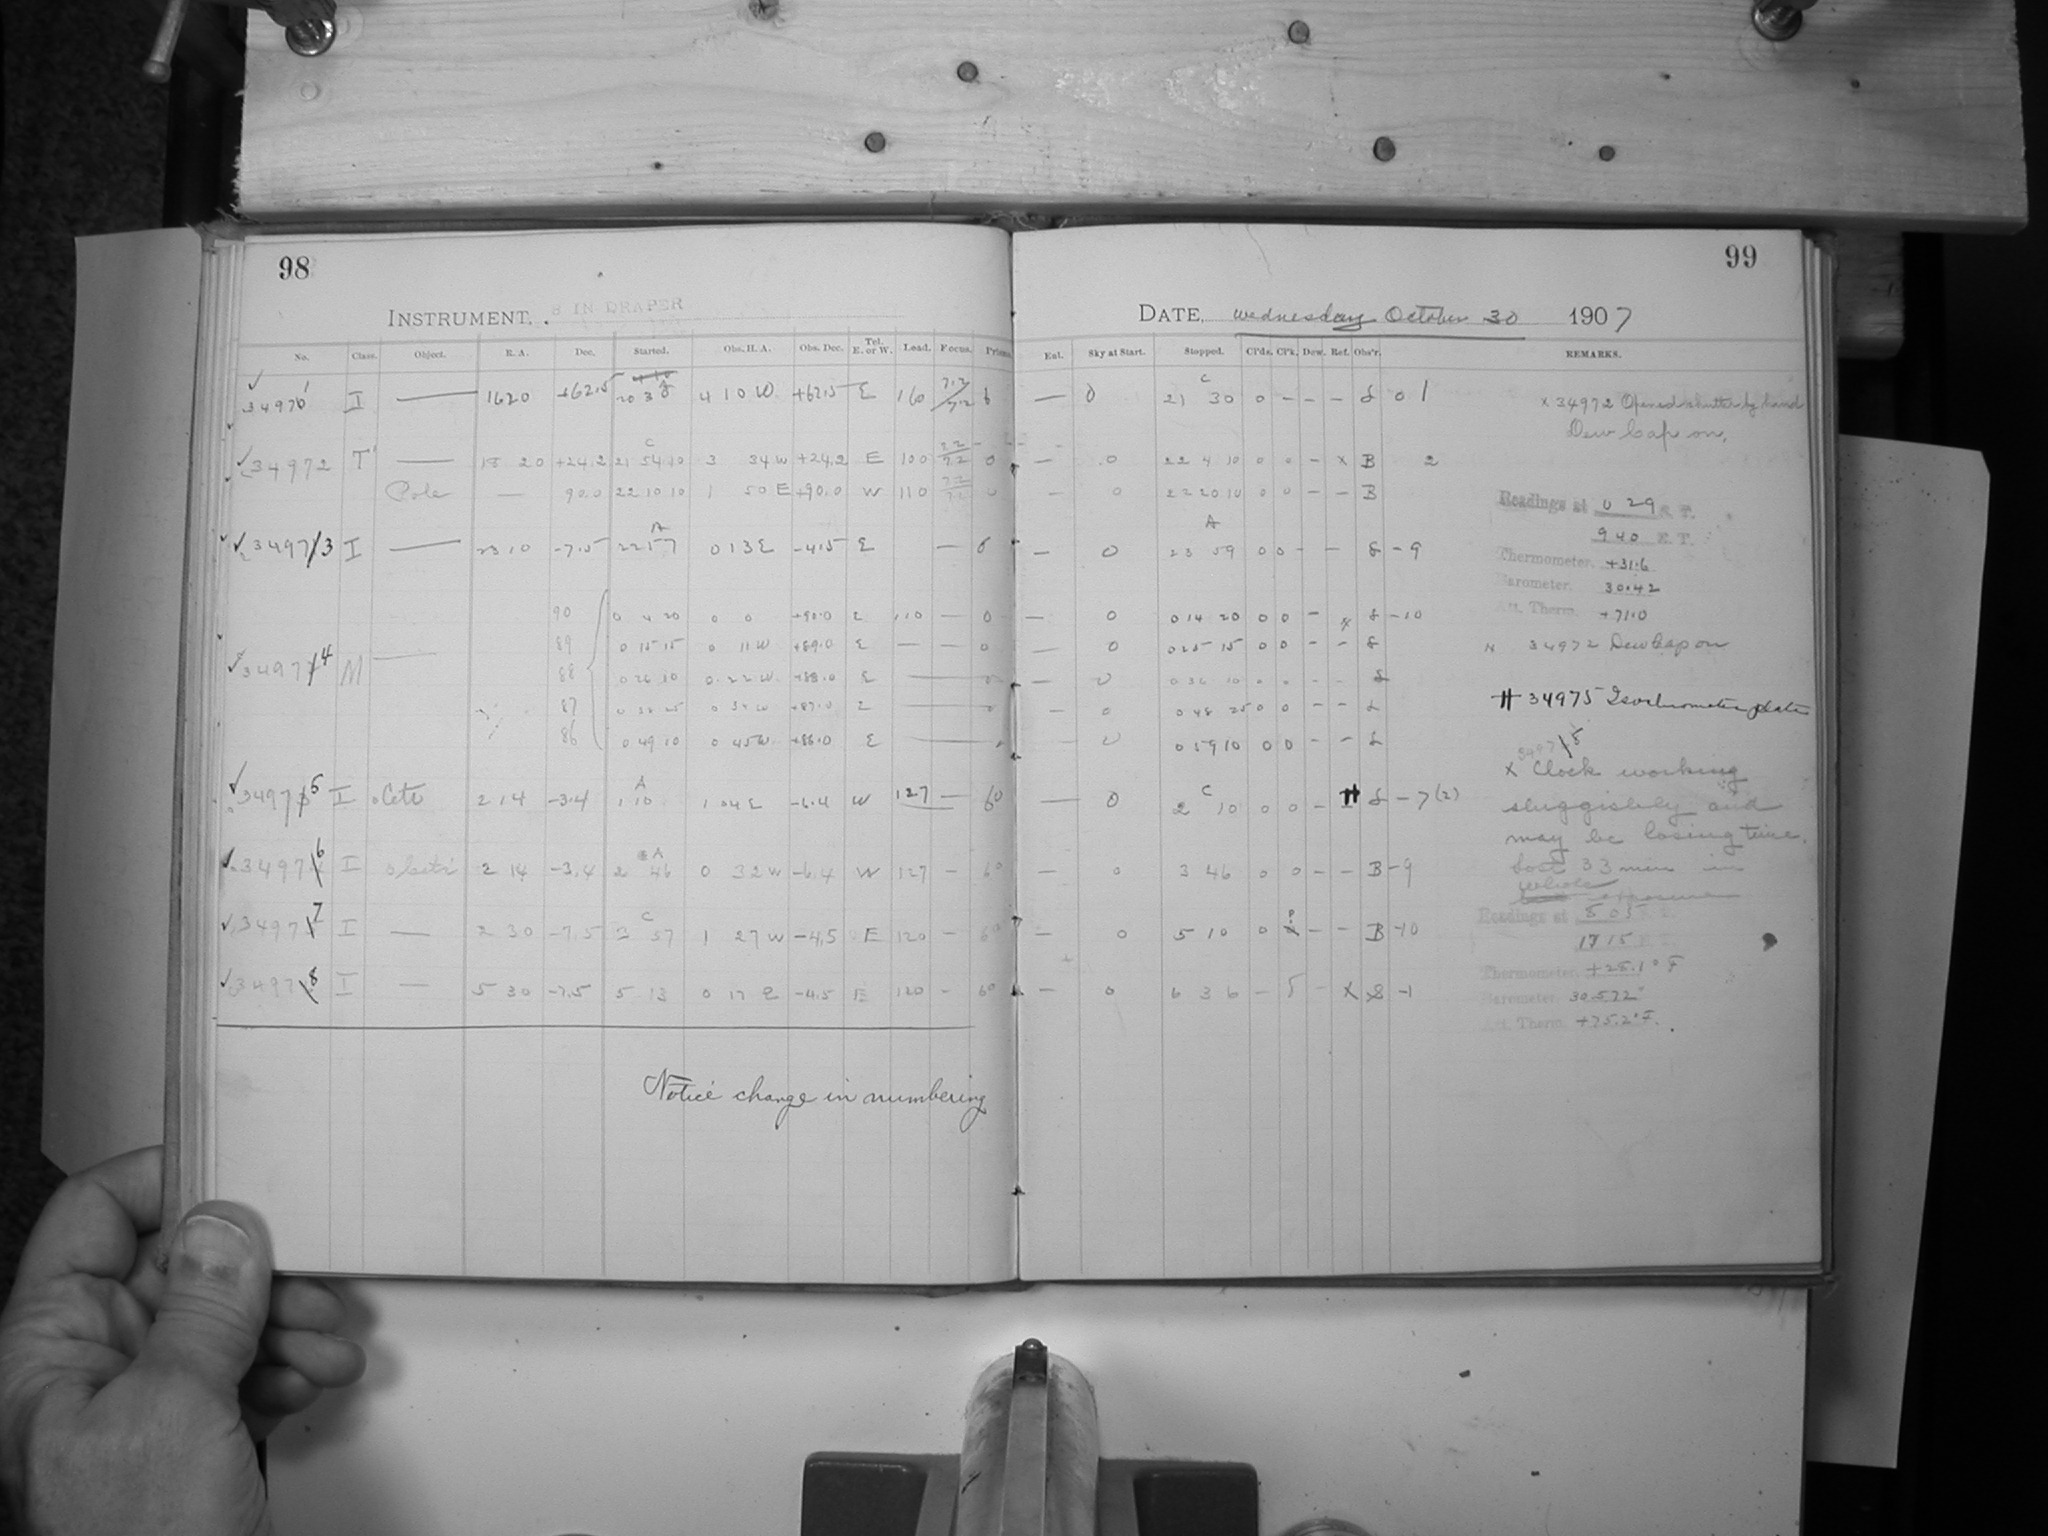 98
INSTRUMENT. 8 IN DRAPER
No. Class. Object. R. A. Dec. Started. Obs. H. A. Obs. Dec. Tel. E. or W. Load. Focus. Prism.
34971 I — 1620 +62.5 20 38 A 4 10 W +62.5 E 160 7.2/7.2 6
34972 T — 18 20 +24.2 C 21 54 10 3 34 W +24.2 E 100 7.2/7.2 0
Pole — 90.0 22 10 10 1 50 E +90.0 W 110 7.2/7.2 0
34973 I — 23 10 -7.5 A 22 57 0 13 E -4.5 E — 6
90 0 4 20 0 0 +90.0 E 110 — 0
89 0 15 15 0 11 W +89.0 E — — 0
34974 M — 88 0 26 10 0 22 W +88.0 E — 0
87 0 38 25 0 34 W +87.0 E — 0
86 0 49 10 0 45 W +86.0 E —
34975 I o Ceti 2 14 -3.4 A 1 10 1 04 E -6.4 W 127 — 60
34976 I o Ceti 2 14 -3.4 A 2 46 0 32 W -6.4 W 127 — 60
34977 I — 2 30 -7.5 C 3 57 1 27 W -4.5 E 120 — 60
34978 I — 5 30 -7.5 5 13 0 17 E -4.5 E 120 - 60
Notice change in numbering
99
DATE, Wednesday October 30 1907
Enl. Sky at Start. Stopped. Cl'ds. Cl'k. Dew. Ref. Obs'r. REMARKS.
— 0 C 21 30 0 - - - S 0 1
— 0 22 4 10 0 0 - x B 2
— 0 22 20 10 0 0 - - B
— 0 A 23 59 0 0 - - S - 9
— 0 0 14 20 0 0 - x S - 10
— 0 0 25 15 0 0 - - S
— 0 0 36 10 0 0 - - S
— 0 0 48 25 0 0 - - S
— 0 0 59 10 0 0 - - S
— 0 C 2 10 0 0 - H S - 7 (2)
— 0 3 46 0 0 - - B - 9
— 0 5 10 0 P x - - B - 10
— 0 6 36 - 5 - x S - 1
x 34972 Opened shutter by hand
Dew Cap on.
Readings at 0 29 S. T.
9 40 E. T.
Thermometer. +31.6
Barometer. 30.42
Att. Therm. +71.0
34972 Dew Cap on
H 34975 Isochromatic plate
34975
x Clock working
sluggishly and
may be losing time.
Lost 33 min in
whole
exposure
Readings at 8 05
17 15 E. T.
Thermometer. +28.1° F
Barometer. 30.572"
Att. Therm. +75.2° F.